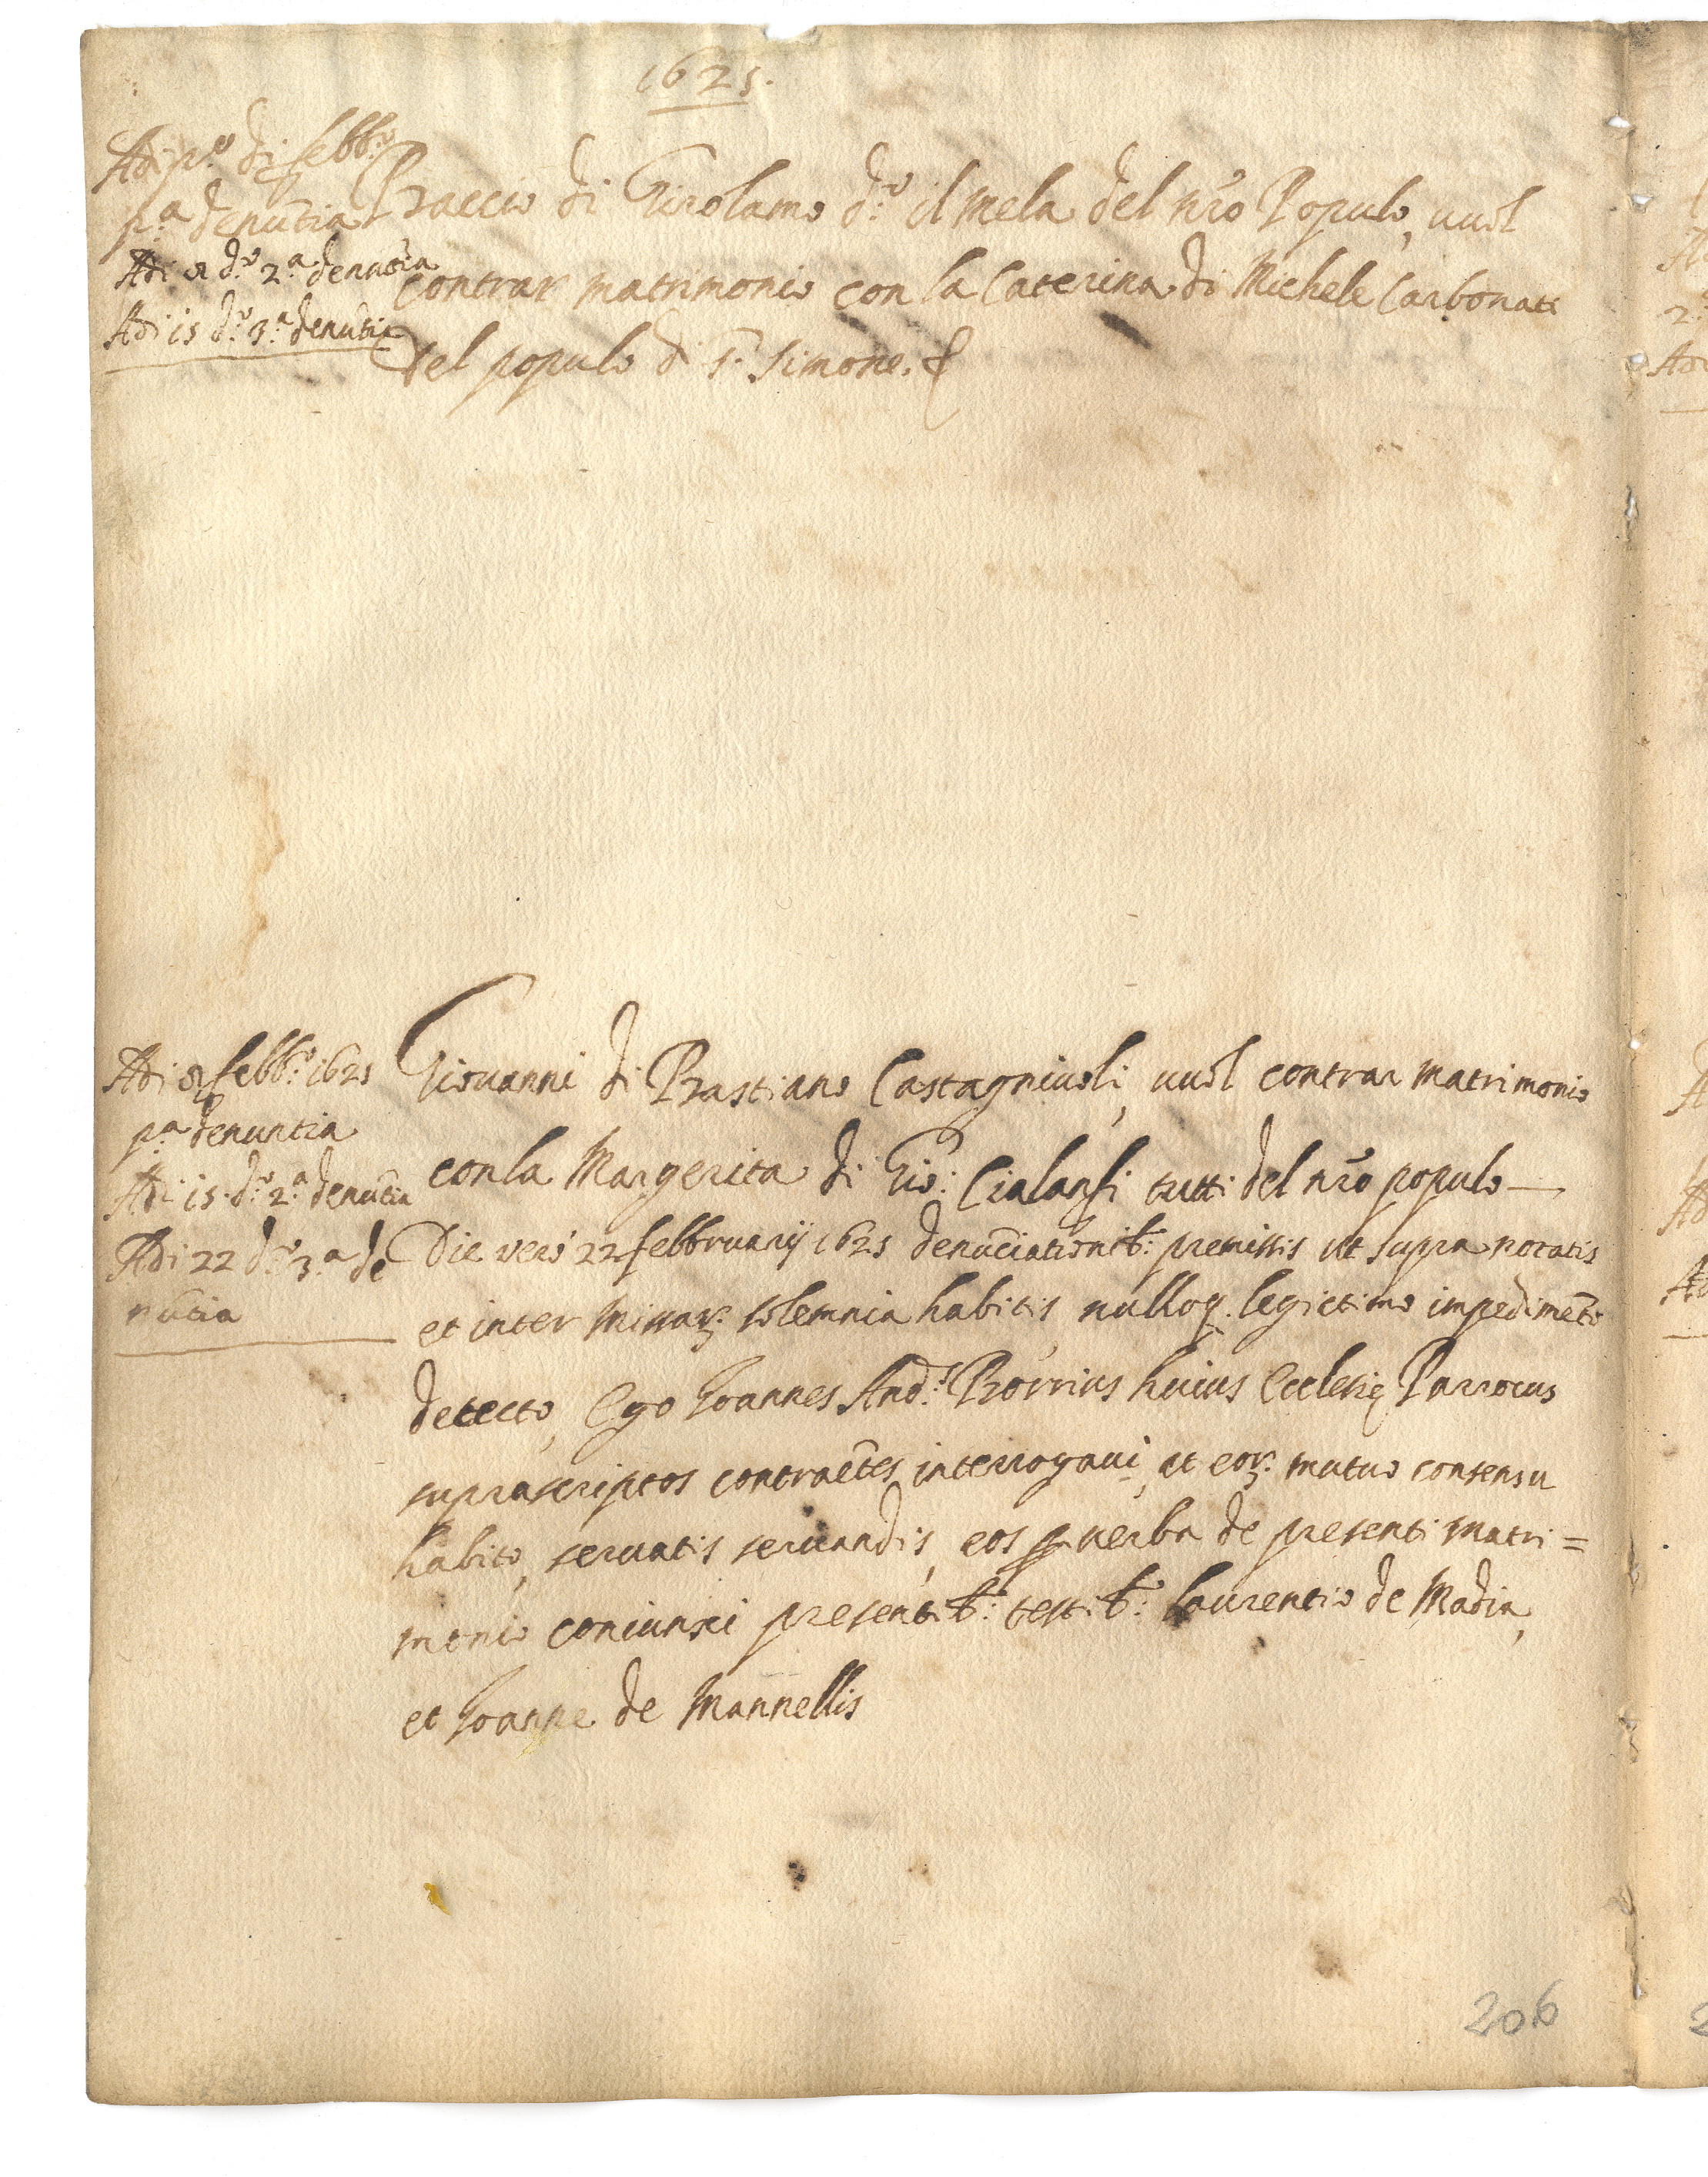 1625.
Adi p.º di febb.º
p.ª denũtia
Adi 8 d.º 2.ª denũtia
Adi 15 d.º 3.ª denũtia
Braccio di Girolamo d.º il mela del nr̃o Populo, vuol
contrar matrimonio con la Caterina di Michele Carbonati
del populo di S. Simone. &
Adi 8 febb.º 1625
p.ª denuntia
Adi 15. d.º 2.ª denũtia
Adi 22 d.º 3.ª de
nũtia
Giovanni di Bastiano Castagniuoli, vuol contrar matrimonio
con la Margerita di Gio: Cialanfi tutti del nr̃o populo —
Die vero 22 febbruarij 1625 denũciationib.: premissis ut supra notatis
et inter Missaꝝ solemnia habitis, nulloq. legictimo impedimẽto
detecto, Ego Joannes And.s Borrius huius Ecclesię Parrocus
suprascriptos contraẽtes interrogaui, et eoꝝ mutuo consensu
habito, servatis servandis, eos ꝑ verba de presenti matri=
monio coniunxi presentib.: testib.: Laurentio de Madia,
et Joanne de Mannellis
206